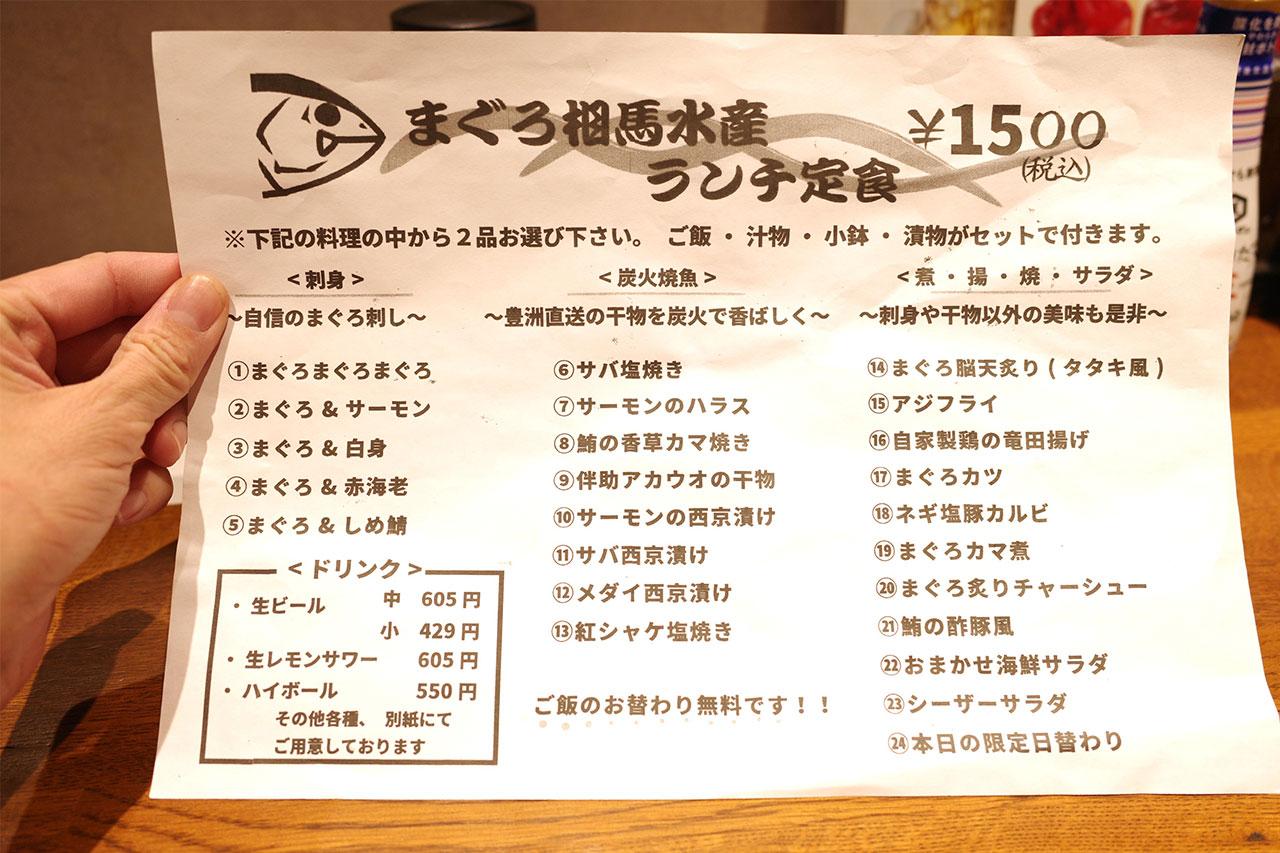 まぐろ相馬水産
ランチ定食
¥1500
(税込)
※下記の料理の中から２品お選び下さい。 ご飯 ・ 汁物 ・ 小鉢 ・ 漬物がセットで付きます。
＜刺身＞
～自信のまぐろ刺し～
①まぐろまぐろまぐろ
②まぐろ & サーモン
③まぐろ & 白身
④まぐろ & 赤海老
⑤まぐろ & しめ鯖
＜ドリンク＞
・生ビール 中 605 円
小 429 円
・生レモンサワー 605 円
・ハイボール 550 円
その他各種、 別紙にて
ご用意しております
＜炭火焼魚＞
～豊洲直送の干物を炭火で香ばしく～
⑥サバ塩焼き
⑦サーモンのハラス
⑧鮪の香草カマ焼き
⑨伴助アカウオの干物
⑩サーモンの西京漬け
⑪サバ西京漬け
⑫メダイ西京漬け
⑬紅シャケ塩焼き
ご飯のお替わり無料です！！
＜煮 ・ 揚 ・ 焼 ・ サラダ＞
～刺身や干物以外の美味も是非～
⑭まぐろ脳天炙り ( タタキ風 )
⑮アジフライ
⑯自家製鶏の竜田揚げ
⑰まぐろカツ
⑱ネギ塩豚カルビ
⑲まぐろカマ煮
⑳まぐろ炙りチャーシュー
㉑鮪の酢豚風
㉒おまかせ海鮮サラダ
㉓シーザーサラダ
㉔本日の限定日替わり